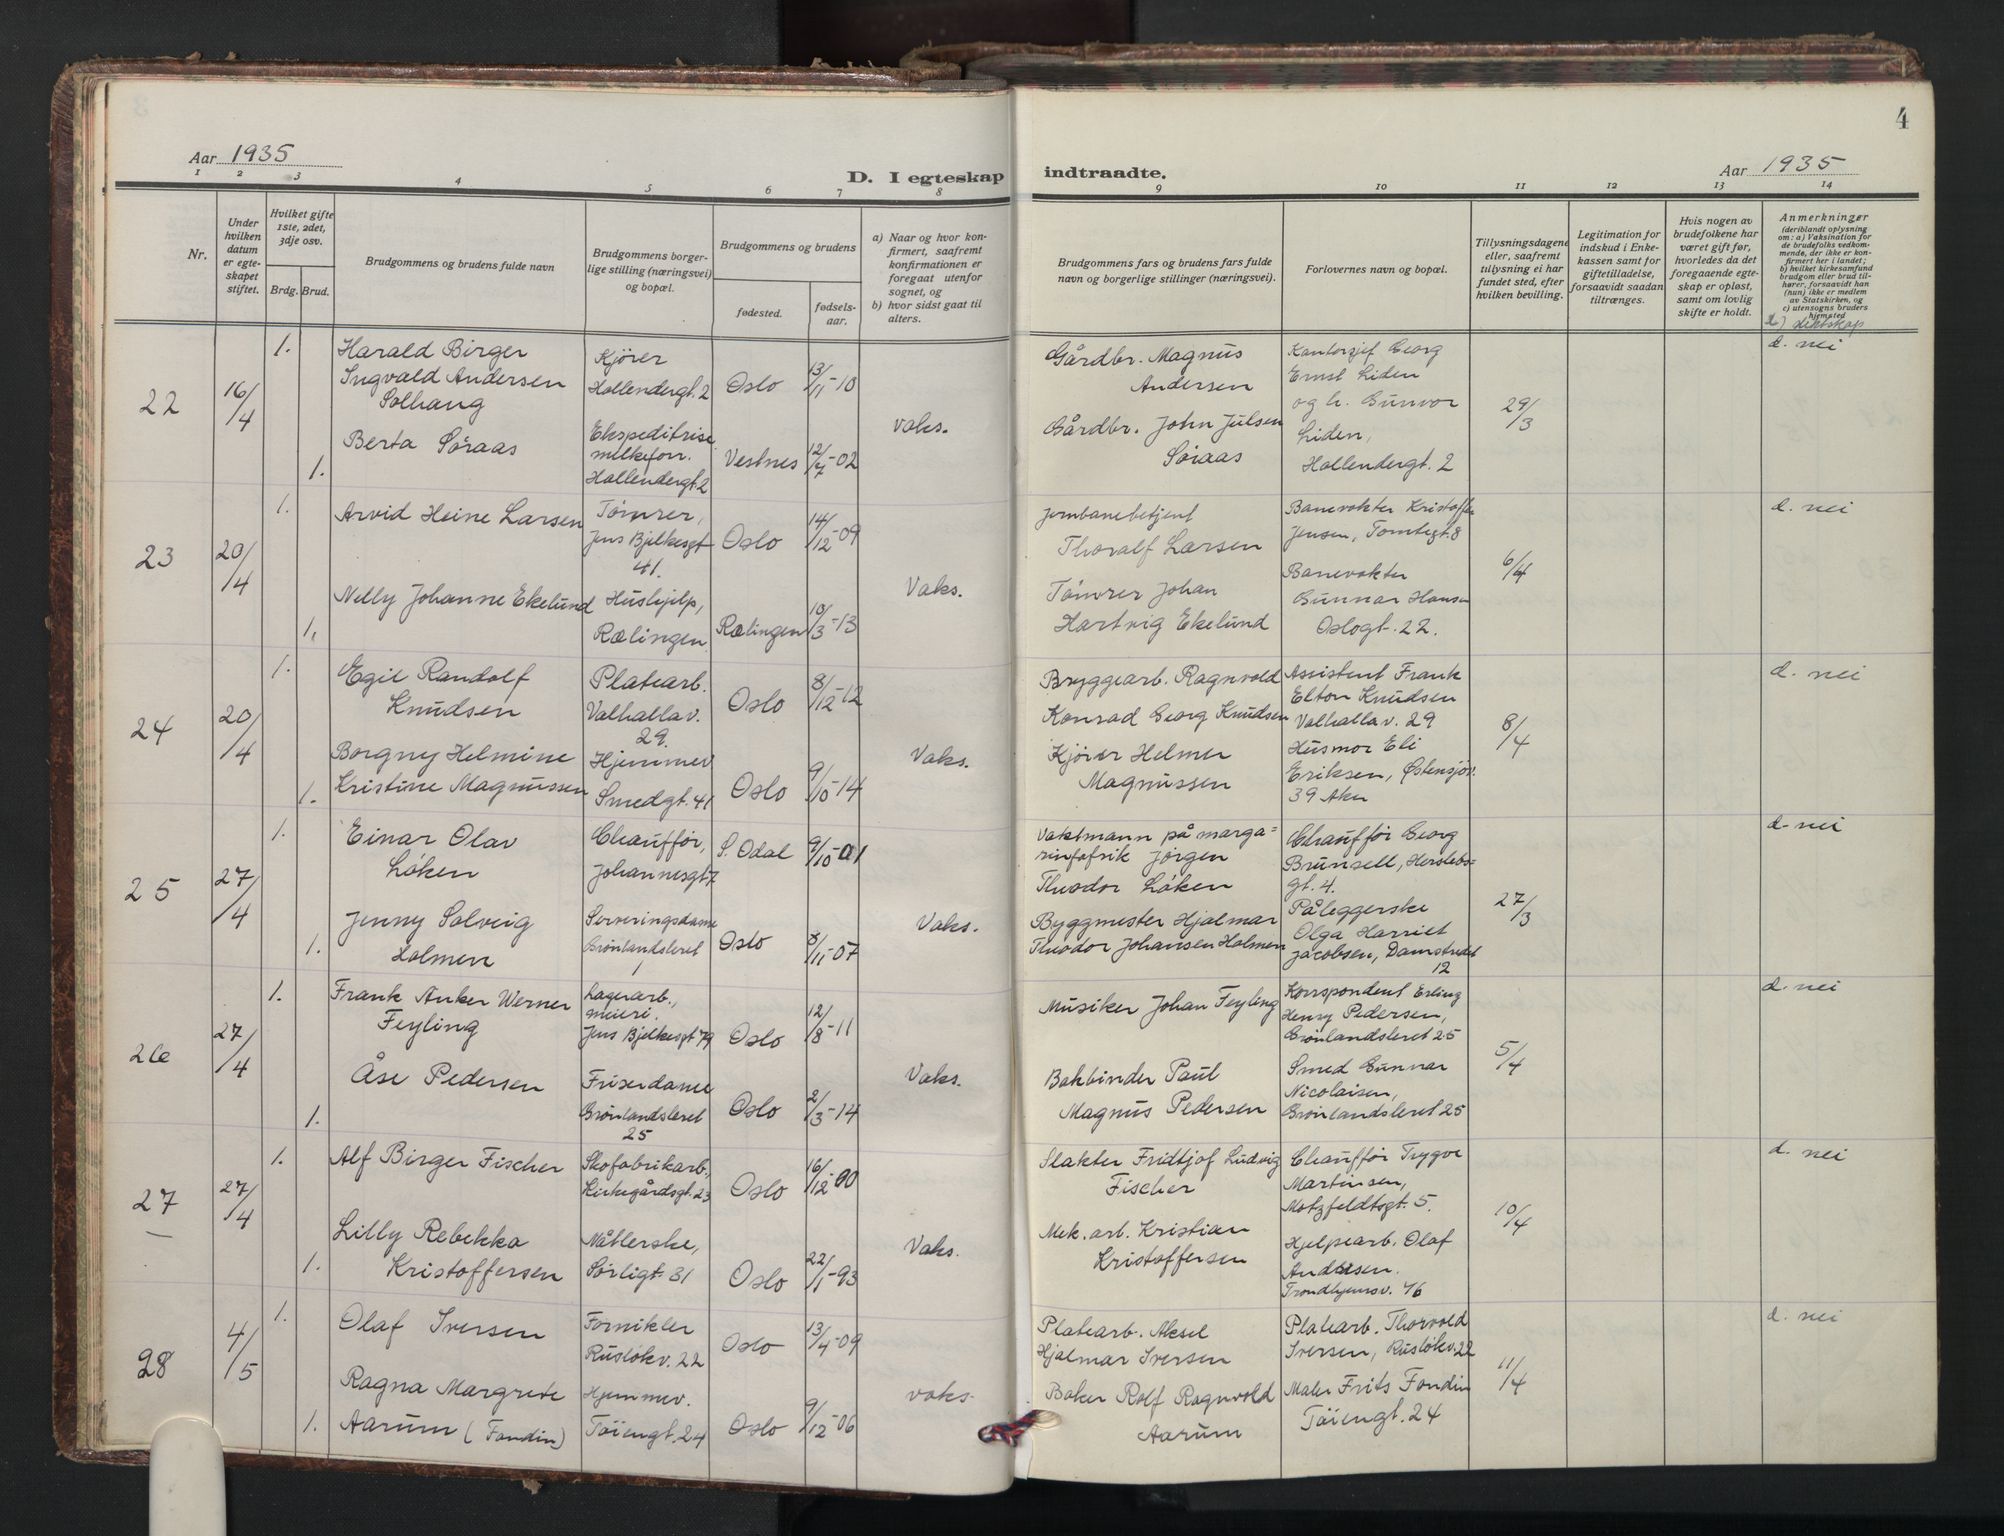 Aar 1935
D. I egteskap
1
2
3
4
5
6
7
8
Nr.
Under hvilken datum er egteskapet stiftet.
Hvilket gifte 1ste, 2det, 3dje osv.
Brdg.
Brud.
Brudgommens og brudens fulde navn
Brudgommens borgerlige stilling (næringsvei) og bopæl.
Brudgommens og brudens
fødested.
fødselsaar.
a) Naar og hvor konfirmert, saafremt konfirmationen er foregaat utenfor sognet, og
b) hvor sidst gaat til alters.
22
16/4
1.
Harald Birger
Ingvald Andersen
Solhaug
Kjører
Hollendergt. 2
Oslo
13/11-10
1.
Berta Søraas
Ekspeditrise
melkeforr.
Hollendergt. 2
Vestnes
12/7-02
vaks.
23
20/4
1.
Arvid Heine Larsen
Tømrer,
Jens Bjelkesgt
41.
Oslo
14/12-09
1,
Nelly Johanne Ekelund
Hushjelp,
Rælingen
Rælingen
10/3-13
Vaks.
24
20/4
1.
Egil Randolf
Knudsen
Platearb.
Valhallav.
29.
Oslo
8/12-12
1.
Borgny Helmine
Kristine Magnussen
Hjemmev
Smedgt. 41
Oslo
9/10-14
Vaks.
25
27/4
1.
Einar Olav
Løken
Chauffør,
Johannesgt 7
S. Odal
9/10-01
1.
Jenny Solveig
Holmen
Serveringsdame
Grønlandsleret
1
Oslo
8/11-07
Vaks.
26
27/4
1.
Frank Anker Werner
Feyling
Lagerarb.,
meieri.
Jens Bjelkesgt 79
Oslo
12/8-11
1.
Åse Pedersen
Friserdame
Grønlandsleret
25
Oslo
2/3-14
Vaks.
27
27/4
1.
Alf Birger Fischer
Skofabrikarb,
Kirkegårdsgt. 23
Oslo
16/12-00
1.
Lilly Rebekka
Kristoffersen
Nåtlerske,
Sørligt. 31
Oslo
22/1-93
Vaks.
28
4/5
1.
Olaf Iversen
Fornikler
Rusløkv. 22
Oslo
13/4-09
1.
Ragna Margrete
Aarum (Fondin)
Hjemmev.
Tøiengt. 24
Oslo
9/12-06
vaks
4
indtraadte.
Aar 1935
9
10
11
12
13
14
Brudgommens fars og brudens fars fulde navn og borgerlige stillinger (næringsvei).
Forlovernes navn og bopæl.
Tillysningsdagene eller, saafremt tillysning ei har fundet sted, efter hvilken bevilling.
Legitimation for indskud i Enkekassen samt for giftetilladelse, forsaavidt saadan tiltrænges.
Hvis nogen av brudefolkene har været gift før, hvorledes da det foregaaende egteskap er opløst, samt om lovlig skifte er holdt.
Anmerkninger
(deriblandt oplysning om: a) Vaksination for de brudefolks vedkommende, der ikke er konfirmert her i landet; b) hvilket kirkesamfund brudgom eller brud tilhører, forsaavidt han (hun) ikke er medlem av Statskirken, og c) utensogns bruders hjemsted
d) slektskap
Gårdbr. Magnus
Andersen
Gårdbr. John Julsen
Søraas
Kontorsjef Georg
Ernst Liden
og h. Gunvor
Liden,
Hollendergt. 2
29/3
d. nei
Jernbanebetjent
Thoralf Larsen
Tømrer Johan
Hartvig Ekelund
Banevokter Kristoffer
Jensen, Tomtegt. 8
Banevokter
Gunnar Hansen
Oslogt. 22.
6/4
d. nei
Bryggearb. Ragnvold
Konrad Georg Knudsen
Kjører Helmer
Magnussen
Assistent Frank
Elton Knudsen
Valhallav. 29
Husmor Eli
Eriksen, Østensjøv.
39 Aker
8/4
d. nei
Vaktmann på marga-
rinfabrik Jørgen
Theodor Løken
Byggmester Hjalmar
Theodor Johansen Holmen
Chauffør Georg
Brunsell, Herslebs-
gt. 4.
Påleggerske
Olga Harriet
Jacobsen, Damstredet
12
27/3
d- nei
Musiker Johan Feyling
Bokbinder Paul
Magnus Pedersen
Korrspondent Erling
Henry Pedersen,
Grønlandsleret 25
Smed Gunnar
Nicolaisen,
Grønlandsleret 25
5/4
d. nei
Slakter Fridtjof Ludvig
Fischer
Mek. arb. Kristian
Kristoffersen
Chauffør Trygve
Martinsen,
Motzfeldtsgt. 5.
Hjelpearb. Olaf
Andersen.
Trondhjemsv. 76
10/4
d. nei
Platearb. Aksel
Hjalmar Iversen
Baker Rolf Ragnvold
Aarum
Platearb. Thorvold
Iversen, Rusløkv. 22
Maler Frits Fondin
Tøiengt. 24
11/4
d. nei